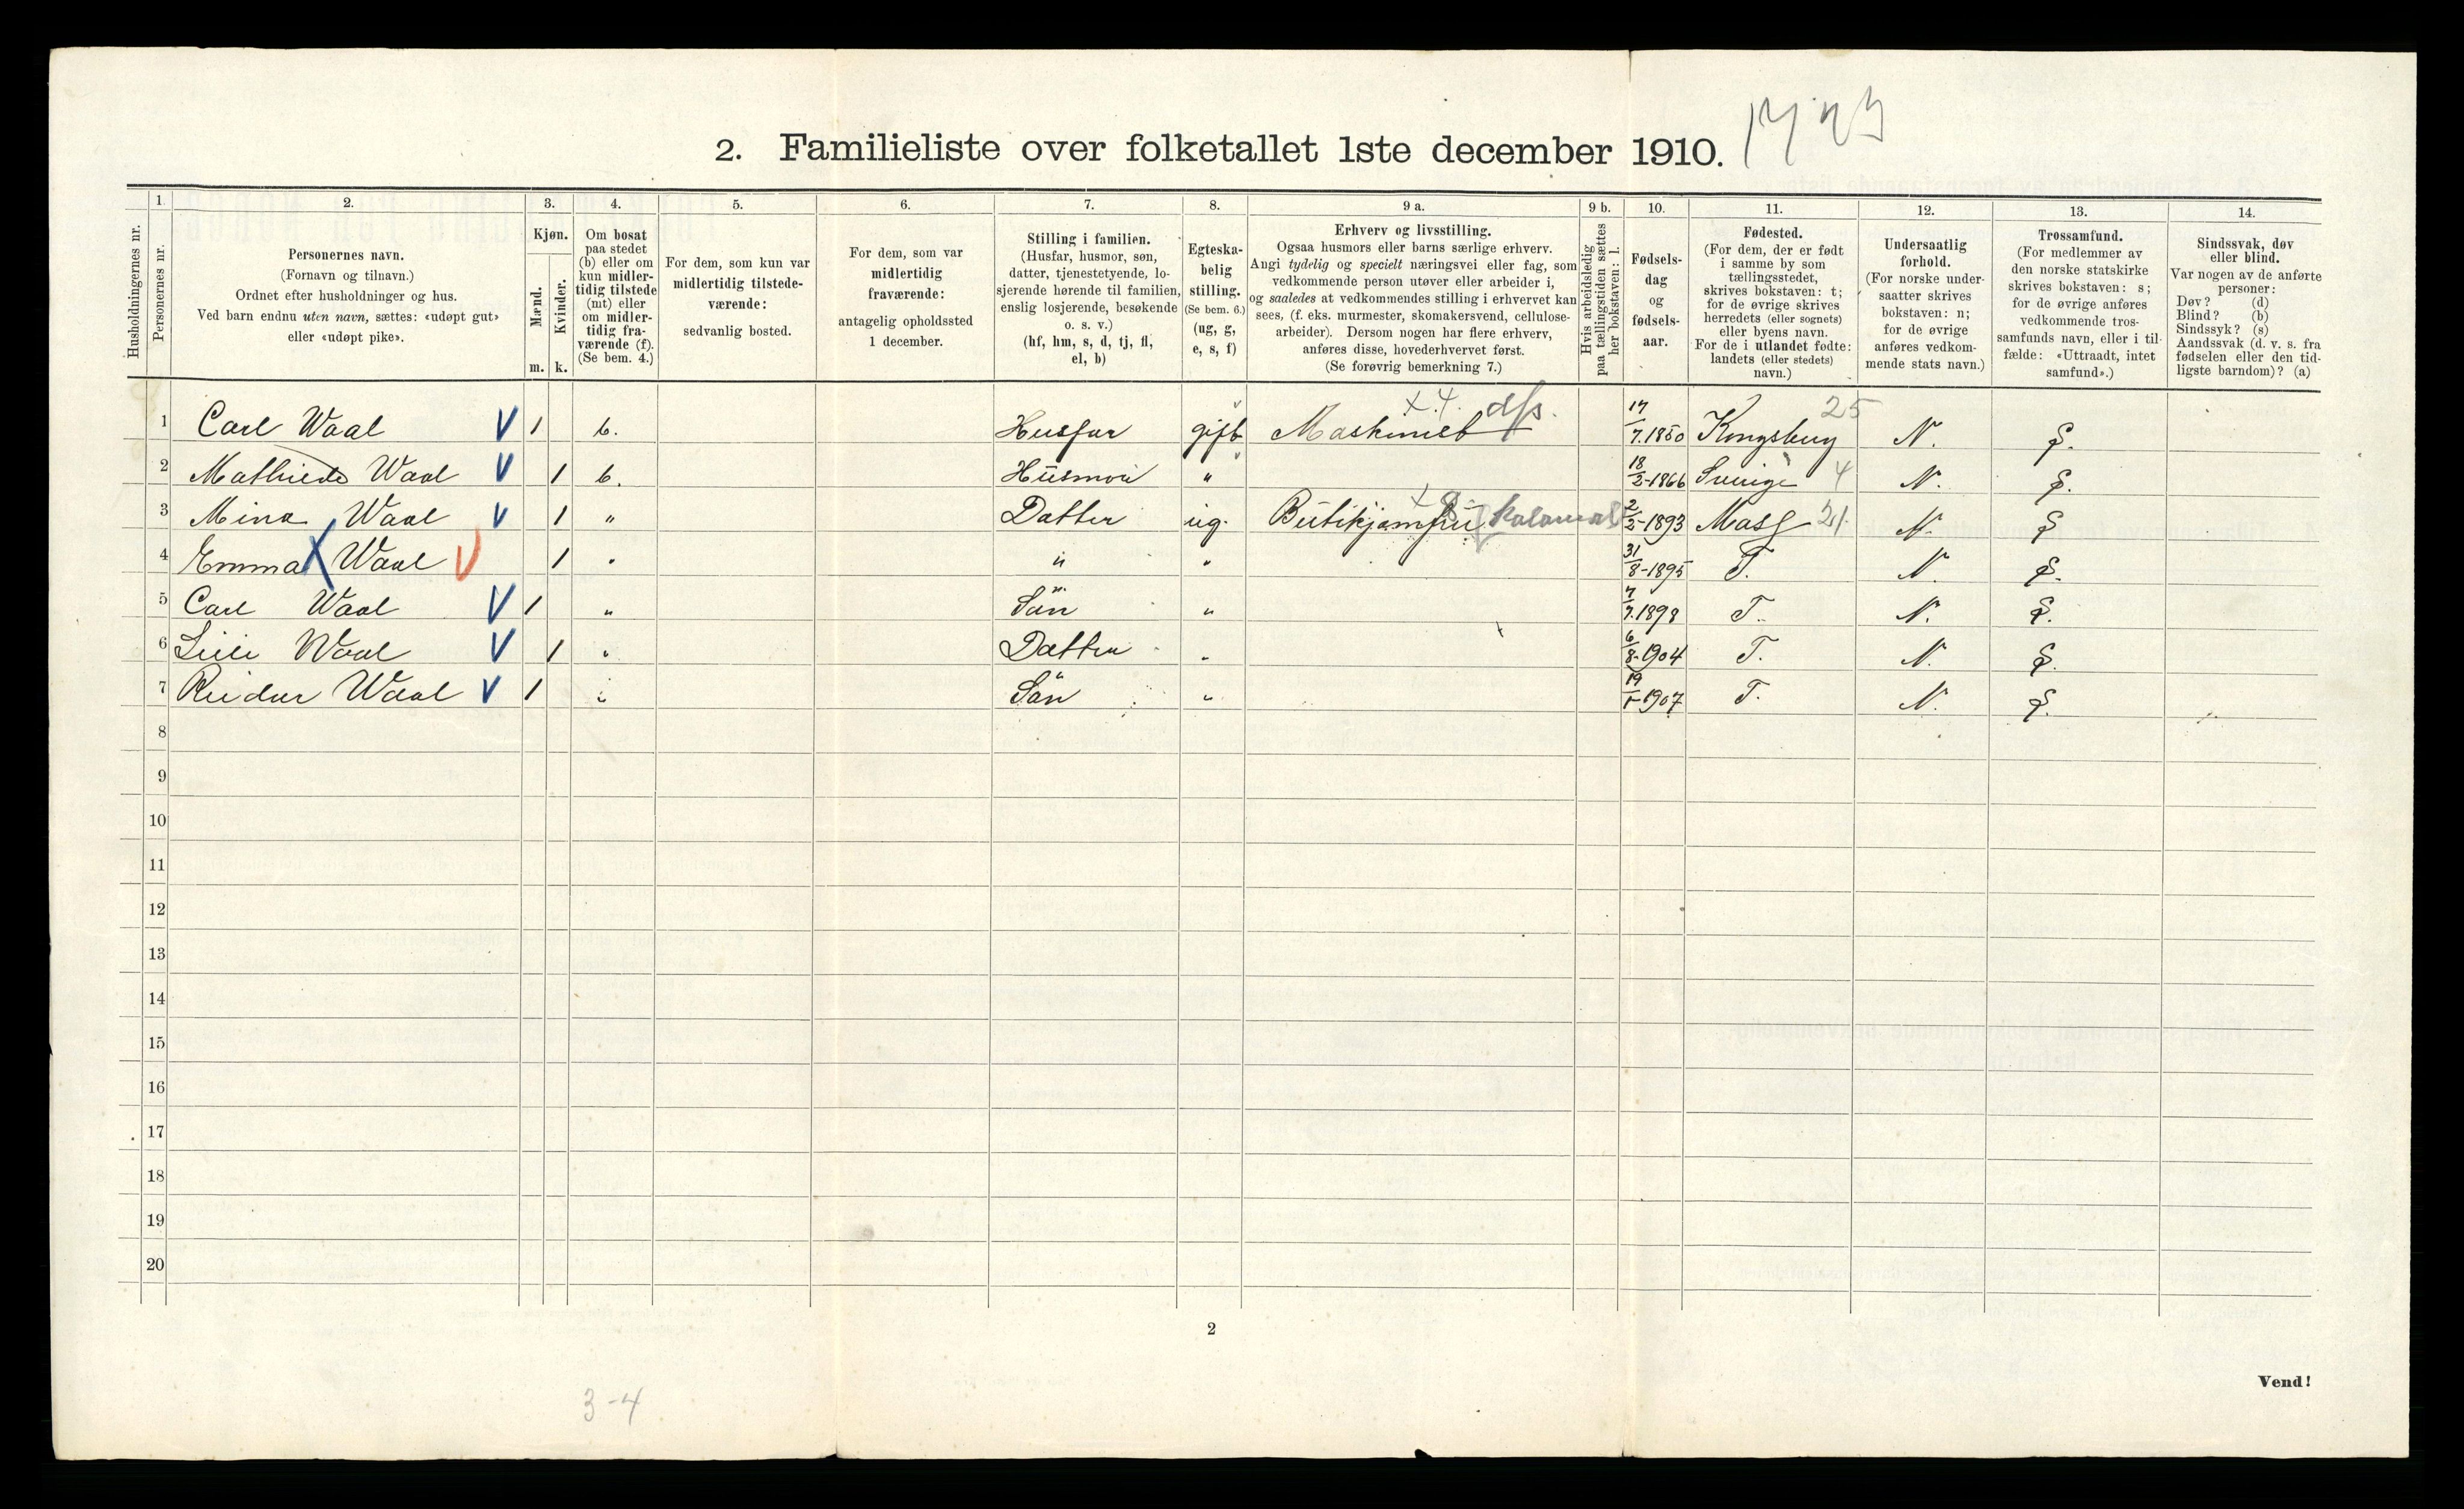 2. Familieliste over folketallet 1ste december 1910.
Husholdningernes nr.
1.
Personernes nr.
2.
Personernes navn.
(Fornavn og tilnavn.)
Ordnet efter husholdninger og hus.
Ved barn endnu uten navn, sættes: «udøpt gut»
eller «udøpt pike».
3.
Kjøn.
Mænd.
Kvinder.
m. k.
4.
Om bosat
paa stedet
(b) eller om
kun midler-
tidig tilstede
(mt) eller
om midler-
tidig fra-
værende (f).
(Se bem. 4.)
5.
For dem, som kun var
midlertidig tilstede-
værende:
sedvanlig bosted.
6.
For dem, som var
midlertidig
fraværende:
antagelig opholdssted
1 december.
7.
Stilling i familien.
(Husfar, husmor, søn,
datter, tjenestetyende, lo-
sjerende hørende til familien,
enslig losjerende, besøkende
o. s. v.)
(hf, hm, s, d, tj, fl,
el, b)
8.
Egteska-
belig
stilling.
(Se bem. 6.)
(ug, g,
e, s, f)
9 a.
Erhverv og livsstilling.
Ogsaa husmors eller barns særlige erhverv.
Angi tydelig og specielt næringsvei eller fag, som
vedkommende person utøver eller arbeider i,
og saaledes at vedkommendes stilling i erhvervet kan
sees, (f. eks. murmester, skomakersvend, cellulose-
arbeider). Dersom nogen har flere erhverv,
anføres disse, hovederhvervet først.
(Se forøvrig bemerkning 7.)
9 b.
Hvis arbeidsledig
paa tællingstiden sættes
her bokstaven: l.
10.
Fødsels-
dag
og
fødsels-
aar.
11.
Fødested.
(For dem, der er født
i samme by som
tællingsstedet,
skrives bokstaven: t;
for de øvrige skrives
herredets (eller sognets)
eller byens navn.
For de i utlandet fødte:
landets (eller stedets)
navn.)
12.
Undersaatlig
forhold.
(For norske under-
saatter skrives
bokstaven: n;
for de øvrige
anføres vedkom-
mende stats navn.)
13.
Trossamfund.
(For medlemmer av
den norske statskirke
skrives bokstaven: s;
for de øvrige anføres
vedkommende tros-
samfunds navn, eller i til-
fælde: «Uttraadt, intet
samfund».)
14.
Sindssvak, døv
eller blind.
Var nogen av de anførte
personer:
Døv? (d)
Blind? (b)
Sindssyk? (s)
Aandssvak (d. v. s. fra
fødselen eller den tid-
ligste barndom)? (a)
x.4. 25
1 Carl Waal V 1 b. Husfar gift Maskinist 17/7.1850 Kongsberg N. S.
2 Mathilde Waal V 1 b. Husmor " 18/2-1866 Sverige 4 N. S.
3 Mina Waal V 1 " Datter ug. Butikjomfru kolonial 2/2-1893 21 N. S
4 Emma X Waal V 1 " " " 31/8-1895 T. N. S.
5 Carl Waal V 1 " Sön " 7/7.1898 T. N. S.
6 Lili Waal V 1 " Datter " 6/8-1904 T. N. S.
7 Reidar Waal V 1 " Sön " 19/1-1907 T. N. S.
8
9
10
11
12
13
14
15
16
17
18
19
20
2
Vend!
3-4